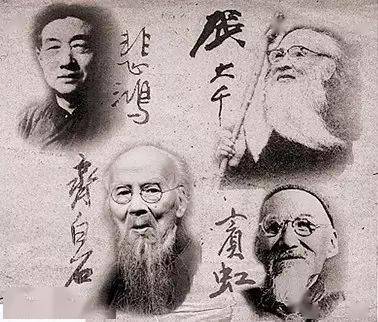 悲鴻
張大千
齊白石
賓虹